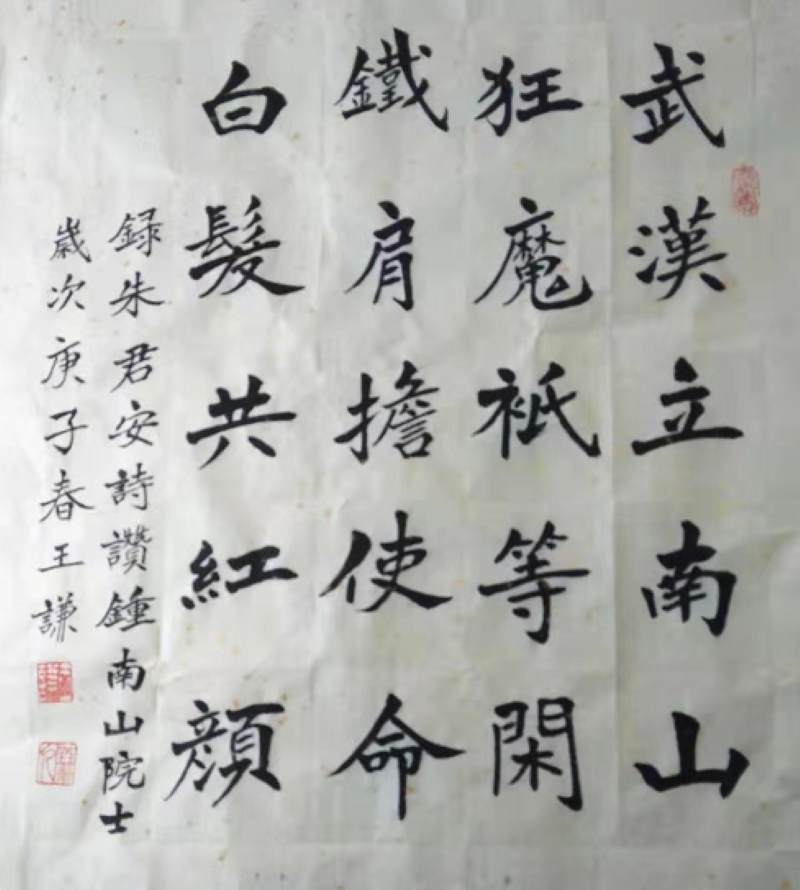 武漢立南山
狂魔衹等閑
鐵肩擔使命
白髮共紅顔
録朱君安詩讚鍾南山院士
歲次庚子春王謙